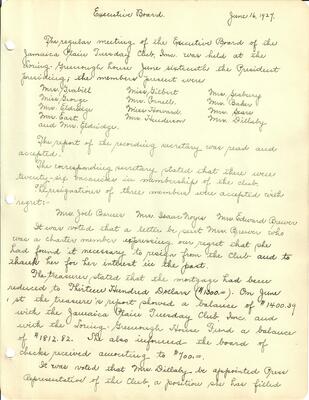 Executive Board. June 16, 1927.
The regular meeting of the Executive Board of the
Jamaica Plain Tuesday Club, Inc. was held at the
Loring-Greenough house June sixteenth the President
presiding; the members present were
Mrs. Grabill Miss Gilbert Mrs. Seabury
Miss George Mrs. Cornell Mrs. Baker
Mrs. Eldredge Miss Howard Mrs. Sears
Mrs. East Mrs. Henderson Mrs. Dillaby
and Mrs. Eldridge.
The report of the recording secretary was read and
accepted.
The corresponding secretary stated that there were
twenty-six vacancies in membership of the club.
The resignations of three members were accepted with
regret:-
Mrs. Joel Mrs. Isaac Noyes Mrs. Edward Brewer
It was voted that a letter be sent Mrs Brewer who
was a charter member expressing our regret that she
had found it necessary to resign from the Club and to
thank her for her interest in the past.
The treasurer stated that the mortgage had been
reduced to Thirteen Hundred Dollars ($1300.=). On June
1st the treasurer's report showed a balance of $1400.39
with the Jamaica Plain Tuesday Club, Inc. and
with the Loring-Greenough House Fund a balance
of $1812.82. She also informed the board of
checks received amounting to $700.=.
It was voted that Mrs Dillaby be appointed Press
Representative of the Club, a position she has filled